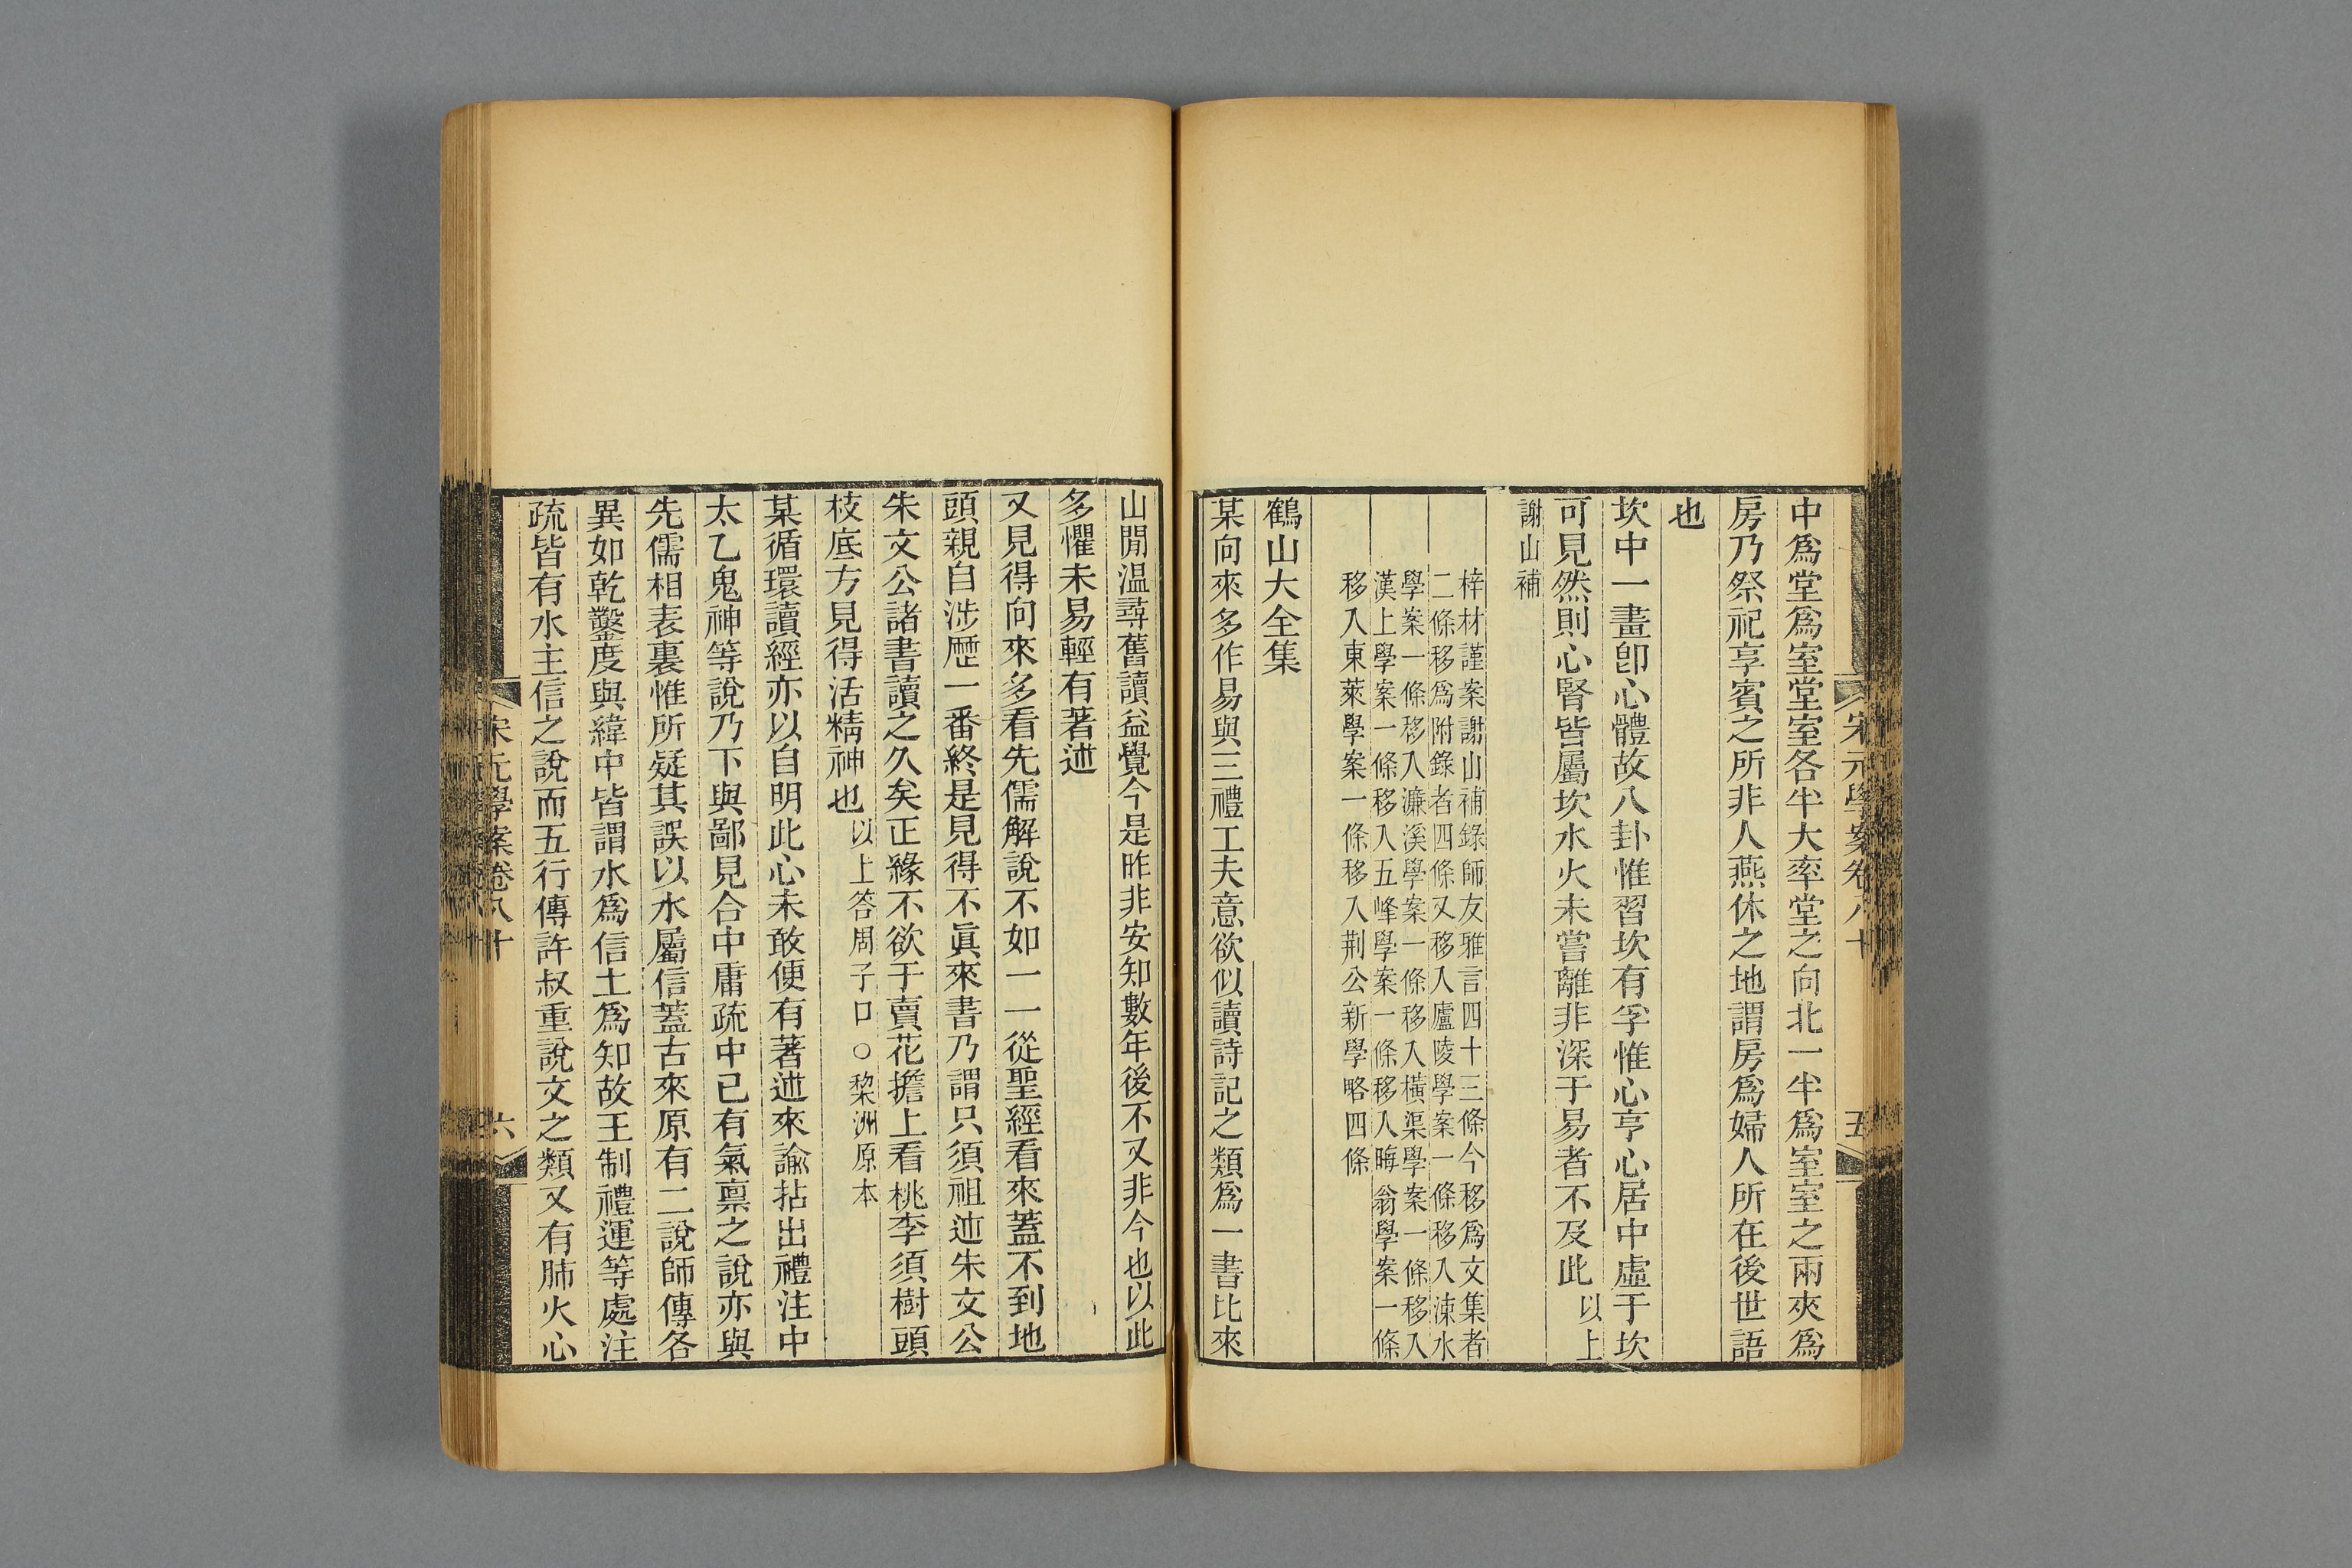 宋元學案卷八十
五
中爲堂爲室堂室各半大率堂之向北一半爲室室之兩夾爲
房乃祭祀享賓之所非人燕休之地謂房爲婦人所在後世語
也
坎中一畫卽心體故八卦惟習坎有孚惟心亨心居中虛于坎
可見然則心腎皆屬坎水火未嘗離非深于易者不及此以上
謝山補
梓材謹案謝山補錄師友雅言四十三條今移爲文集者
二條移爲附錄者四條又移入廬陵學案一條移入涑水
學案一條移入濂溪學案一條移入橫渠學案一條移入
漢上學案一條移入五峰學案一條移入晦翁學案一條
移入東萊學案一條移入荆公新學略四條
鶴山大全集
某向來多作易與三禮工夫意欲似讀詩記之類爲一書比來
山閒温尋舊讀益覺今是昨非安知數年後不又非今也以此
多懼未易輕有著述
又見得向來多看先儒解說不如一一從聖經看來蓋不到地
頭親自涉歷一番終是見得不眞來書乃謂只須祖述朱文公
朱文公諸書讀之久矣正緣不欲于賣花擔上看桃李須樹頭
枝底方見得活精神也以上答周子口○黎洲原本
某循環讀經亦以自明此心未敢便有著述來諭拈出禮注中
太乙鬼神等說乃下與鄙見合中庸疏中已有氣稟之說亦與
先儒相表裏惟所疑其誤以水屬信蓋古來原有二說師傳各
異如乾鑿度與緯中皆謂水爲信土爲知故王制禮運等處注
疏皆有水主信之說而五行傳許叔重說文之類又有肺火心
宋元學案卷八十
六